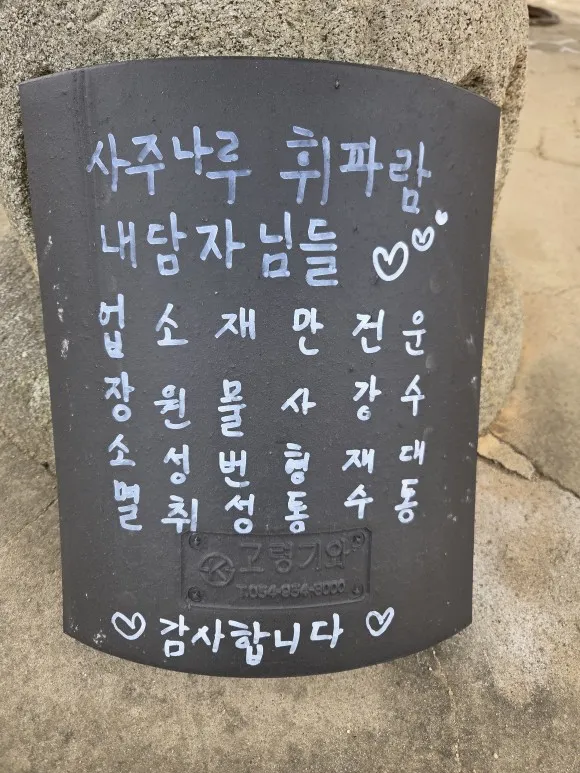 사주나루 휘파람
내담자님들
운수대통
건강재수
만사형통
재물번성
소원성취
업장소멸
고령기와
T.054-954-8000
감사합니다